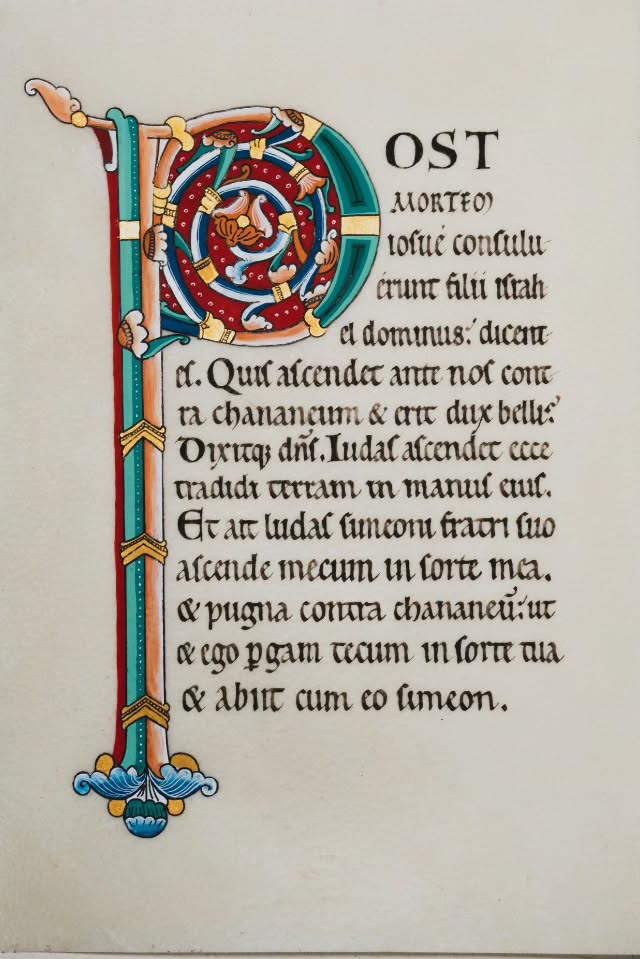 POST
MORTEM
iosué consulu
érunt filii israh
el dominus: dicent
es. Quis ascendet ante nos cont
ra chananeum & erit dux belli?
Dixitq; dñs. Iudas ascendet ecce
tradidi terram in manus eius.
Et ait Iudas simeoni fratri suo
ascende mecum in sorte mea.
& pugna contra chananeū: ut
& ego ꝑgam tecum in sorte tua
& abiit cum eo simeon.